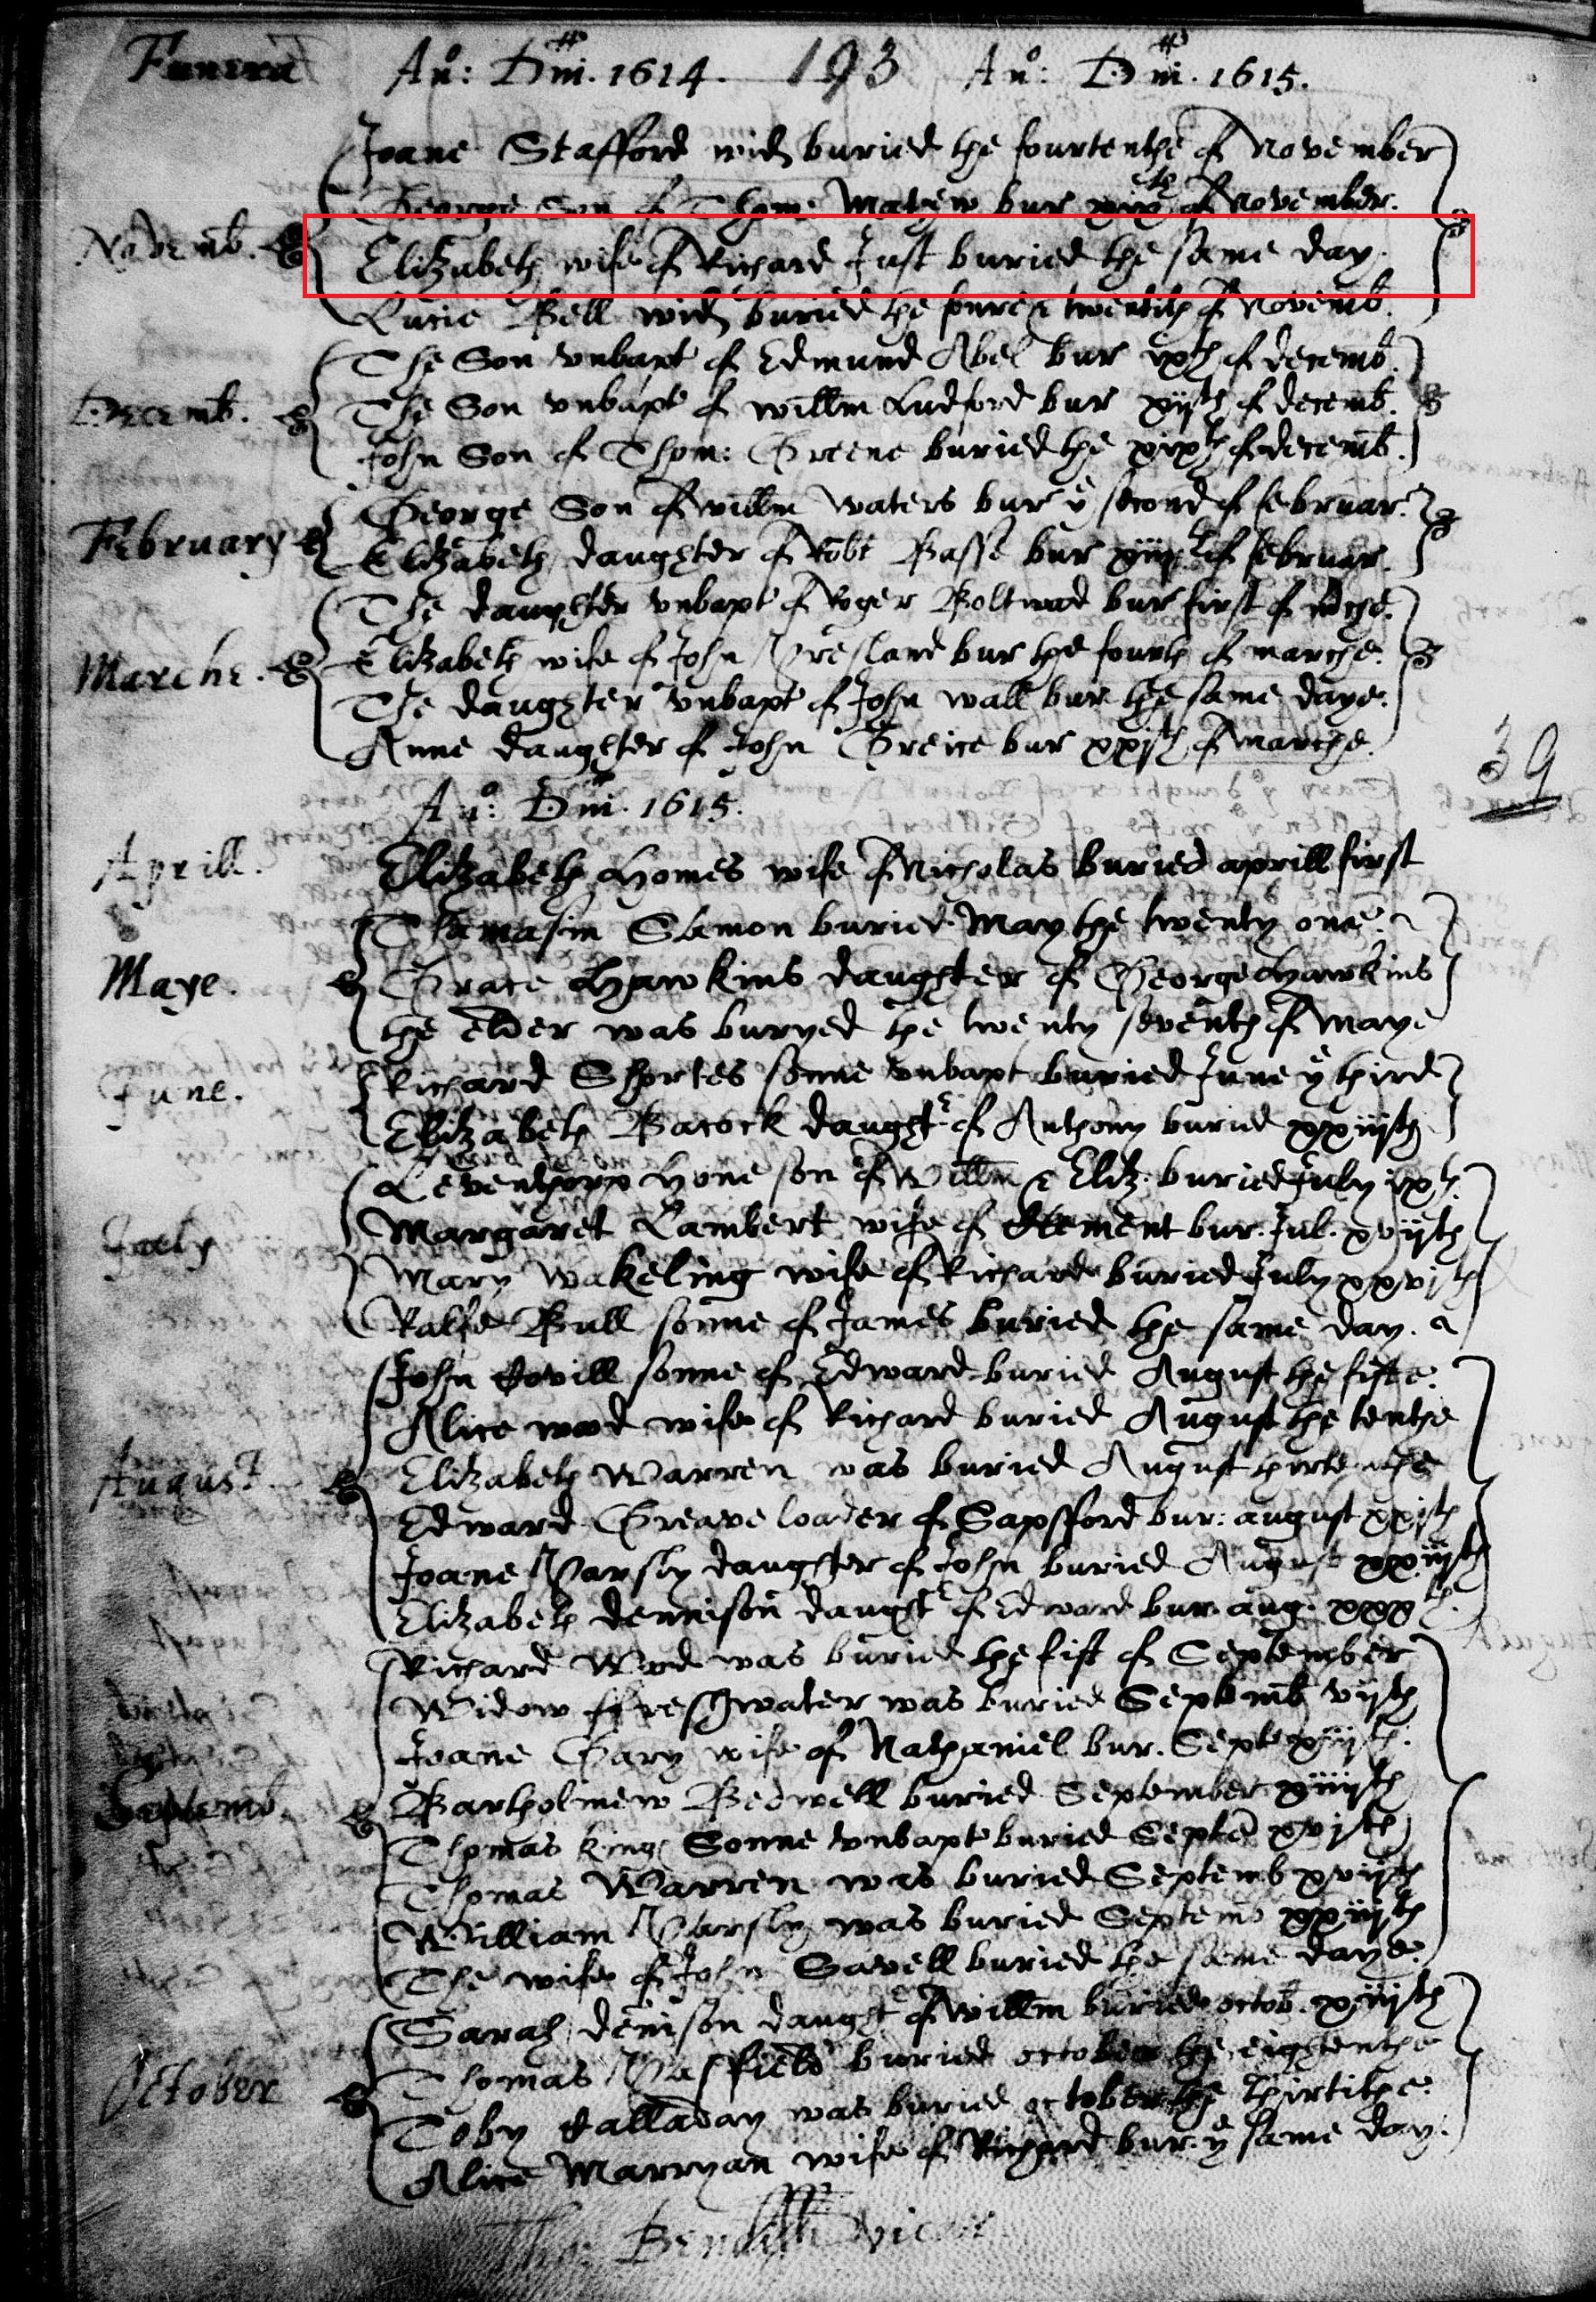 Funera Ao: Dni. 1614. 193 Ao: Dni. 1615.
Joane Stafford wid buried the fourtenthe of November
George Son of Thome Mathew bur xix th of November.
Novemb. Elizabeth wife of Richard Just buried the same day.
Lucie Bell wid buried the foure & twentith of Novemb.
The Son unbapt of Edmund Abel bur ixth of decemb.
Decemb. The Son unbapt of willm Ludford bur xijth of decemb.
John Son of Thom: Greene buried the xixth of decemb.
George Son of willm Waters bur ye second of februar.
February Elizabeth daughter of Robt Basse bur of februar.
The daughter unbapt of Roger Boltwood bur first of
Marche. Elizabeth wife of John Presland bur the fourth of marche.
The daughter unbapt of John wall bur the same daye.
Anne daughter of John Greice bur xxjth of marche.
39
Ao: Dni. 1615.
Aprill. Elizabeth Homes wife of Nicholas buried aprill first
Thamasin Slamon buried May the twenty one.
Maye. Grace Hawkins daughter of George Hawkins
the elder was buryed the twenty seventh of Maye
June. Richard Shortes sonne unbapt buried June ye third
Elizabeth Bacock daught of Anthony buried xxiijth
Leventhorp Hone son of Willm & Eliz. buried July ixth.
July Margaret Lambert wife of Clement bur. Jul. xvijth
Mary Wakeling wife of Richard buried July xxvjth
Ralfe Bull sonne of James buried the same day.
John Covill sonne of Edward buried August the fifte.
Alice wood wife of Richard buried August the tenthe
August. Elizabeth Warren was buried August
Edward Greave loader of Sapsford bur: august xxjth
Joane Parsly daughter of John buried August xxiijth
Elizabeth dennison daught of Edward bur. aug. xxx th.
Richard Wood was buried the fift of September
Widow ffreshwater was buried Septemb vijth
Joane Gary wife of Nathaniel bur. Sept xiijth.
Septemb. Bartholmew Bedwell buried September xiiijth
Thomas king Sonne unbapt buried Septe xvjth
Thomas Warren was buried Septemb xvijth
William Parsly was buried Septemb xxiijth
The wife of John Savell buried the same daye.
Sarah denison daught of willm buried octob. xiijth
October Thomas Pasfield buried october the eightenthe
Toby Calladay was buried october the thirtithe.
Alice Marryan wife of Richard bur. ye same day.
Tho: Bendish vicar